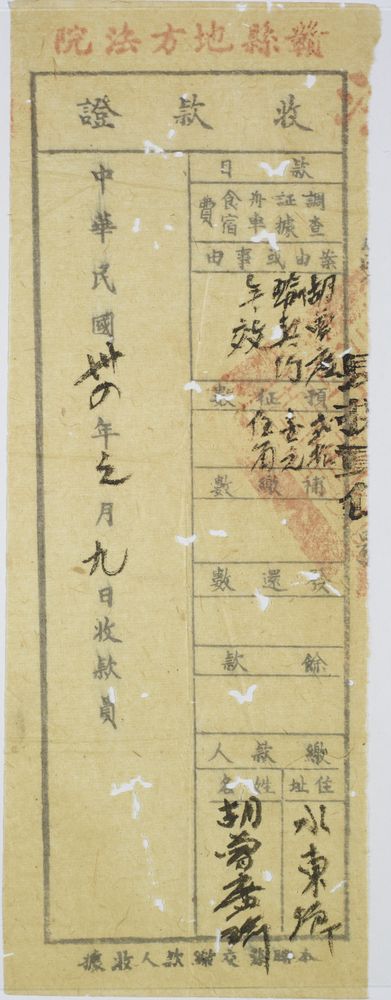 贛縣地方法院
收款證
款目
調查証據舟車食宿費
案由或事由
胡
契約
無效
預征數
補繳數
發還數
餘款
繳款人
住址
姓名
水東鄉
胡
中華民國卅四年元月九日收款員
本聯發交繳款人收據